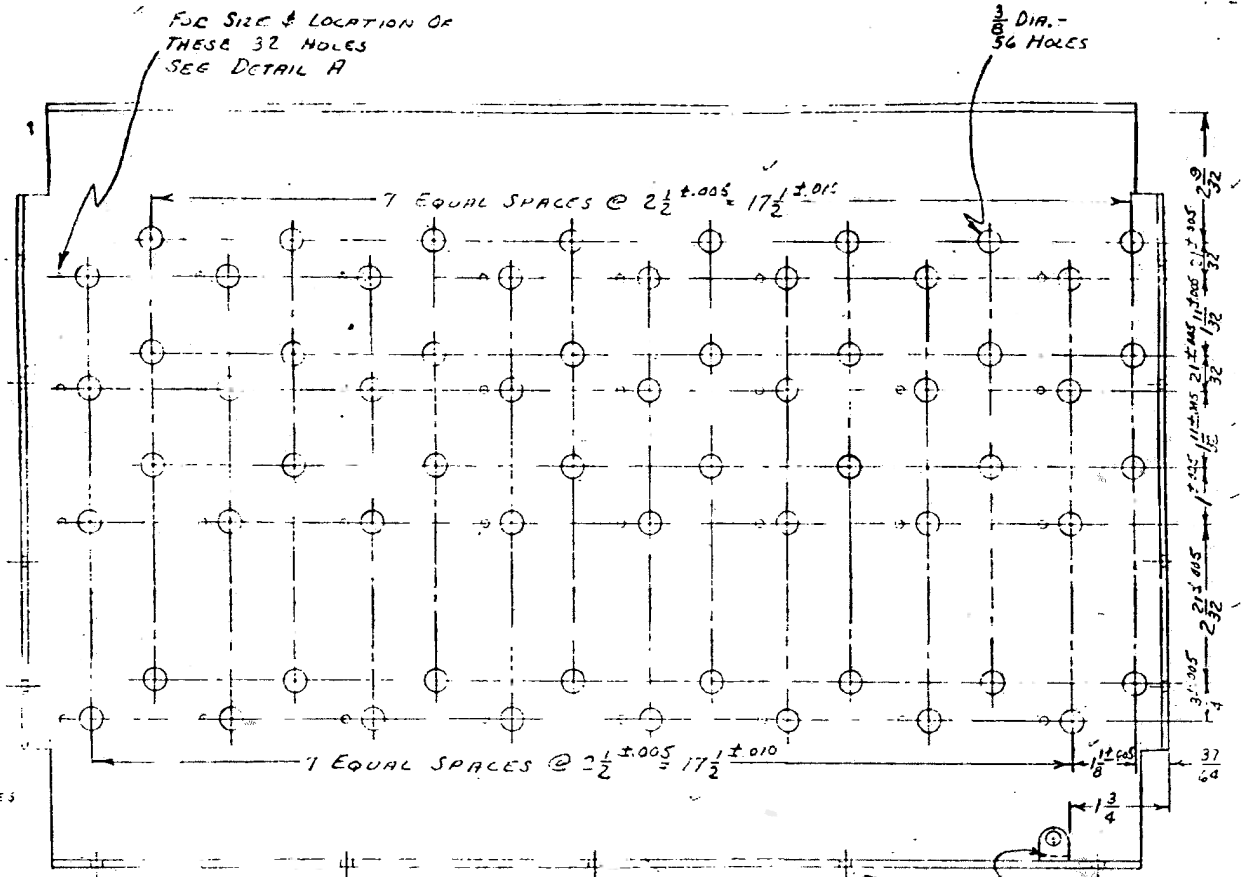 FOR SIZE & LOCATION OF
THESE 32 HOLES
SEE DETAIL A
3/8 DIA.-
56 HOLES
7 EQUAL SPACES @ 2 1/2 ±.005 = 17 1/2 ±.010
2 9/32
21/32 ±.005
1 11/32 ±.005
21/32 ±.005
1 11/32 ±.005
1 ±.005
2 21/32 ±.005
3/4 ±.005
7 EQUAL SPACES @ 2 1/2 ±.005 = 17 1/2 ±.010
1 1/8 ±.005
37/64
1 3/4